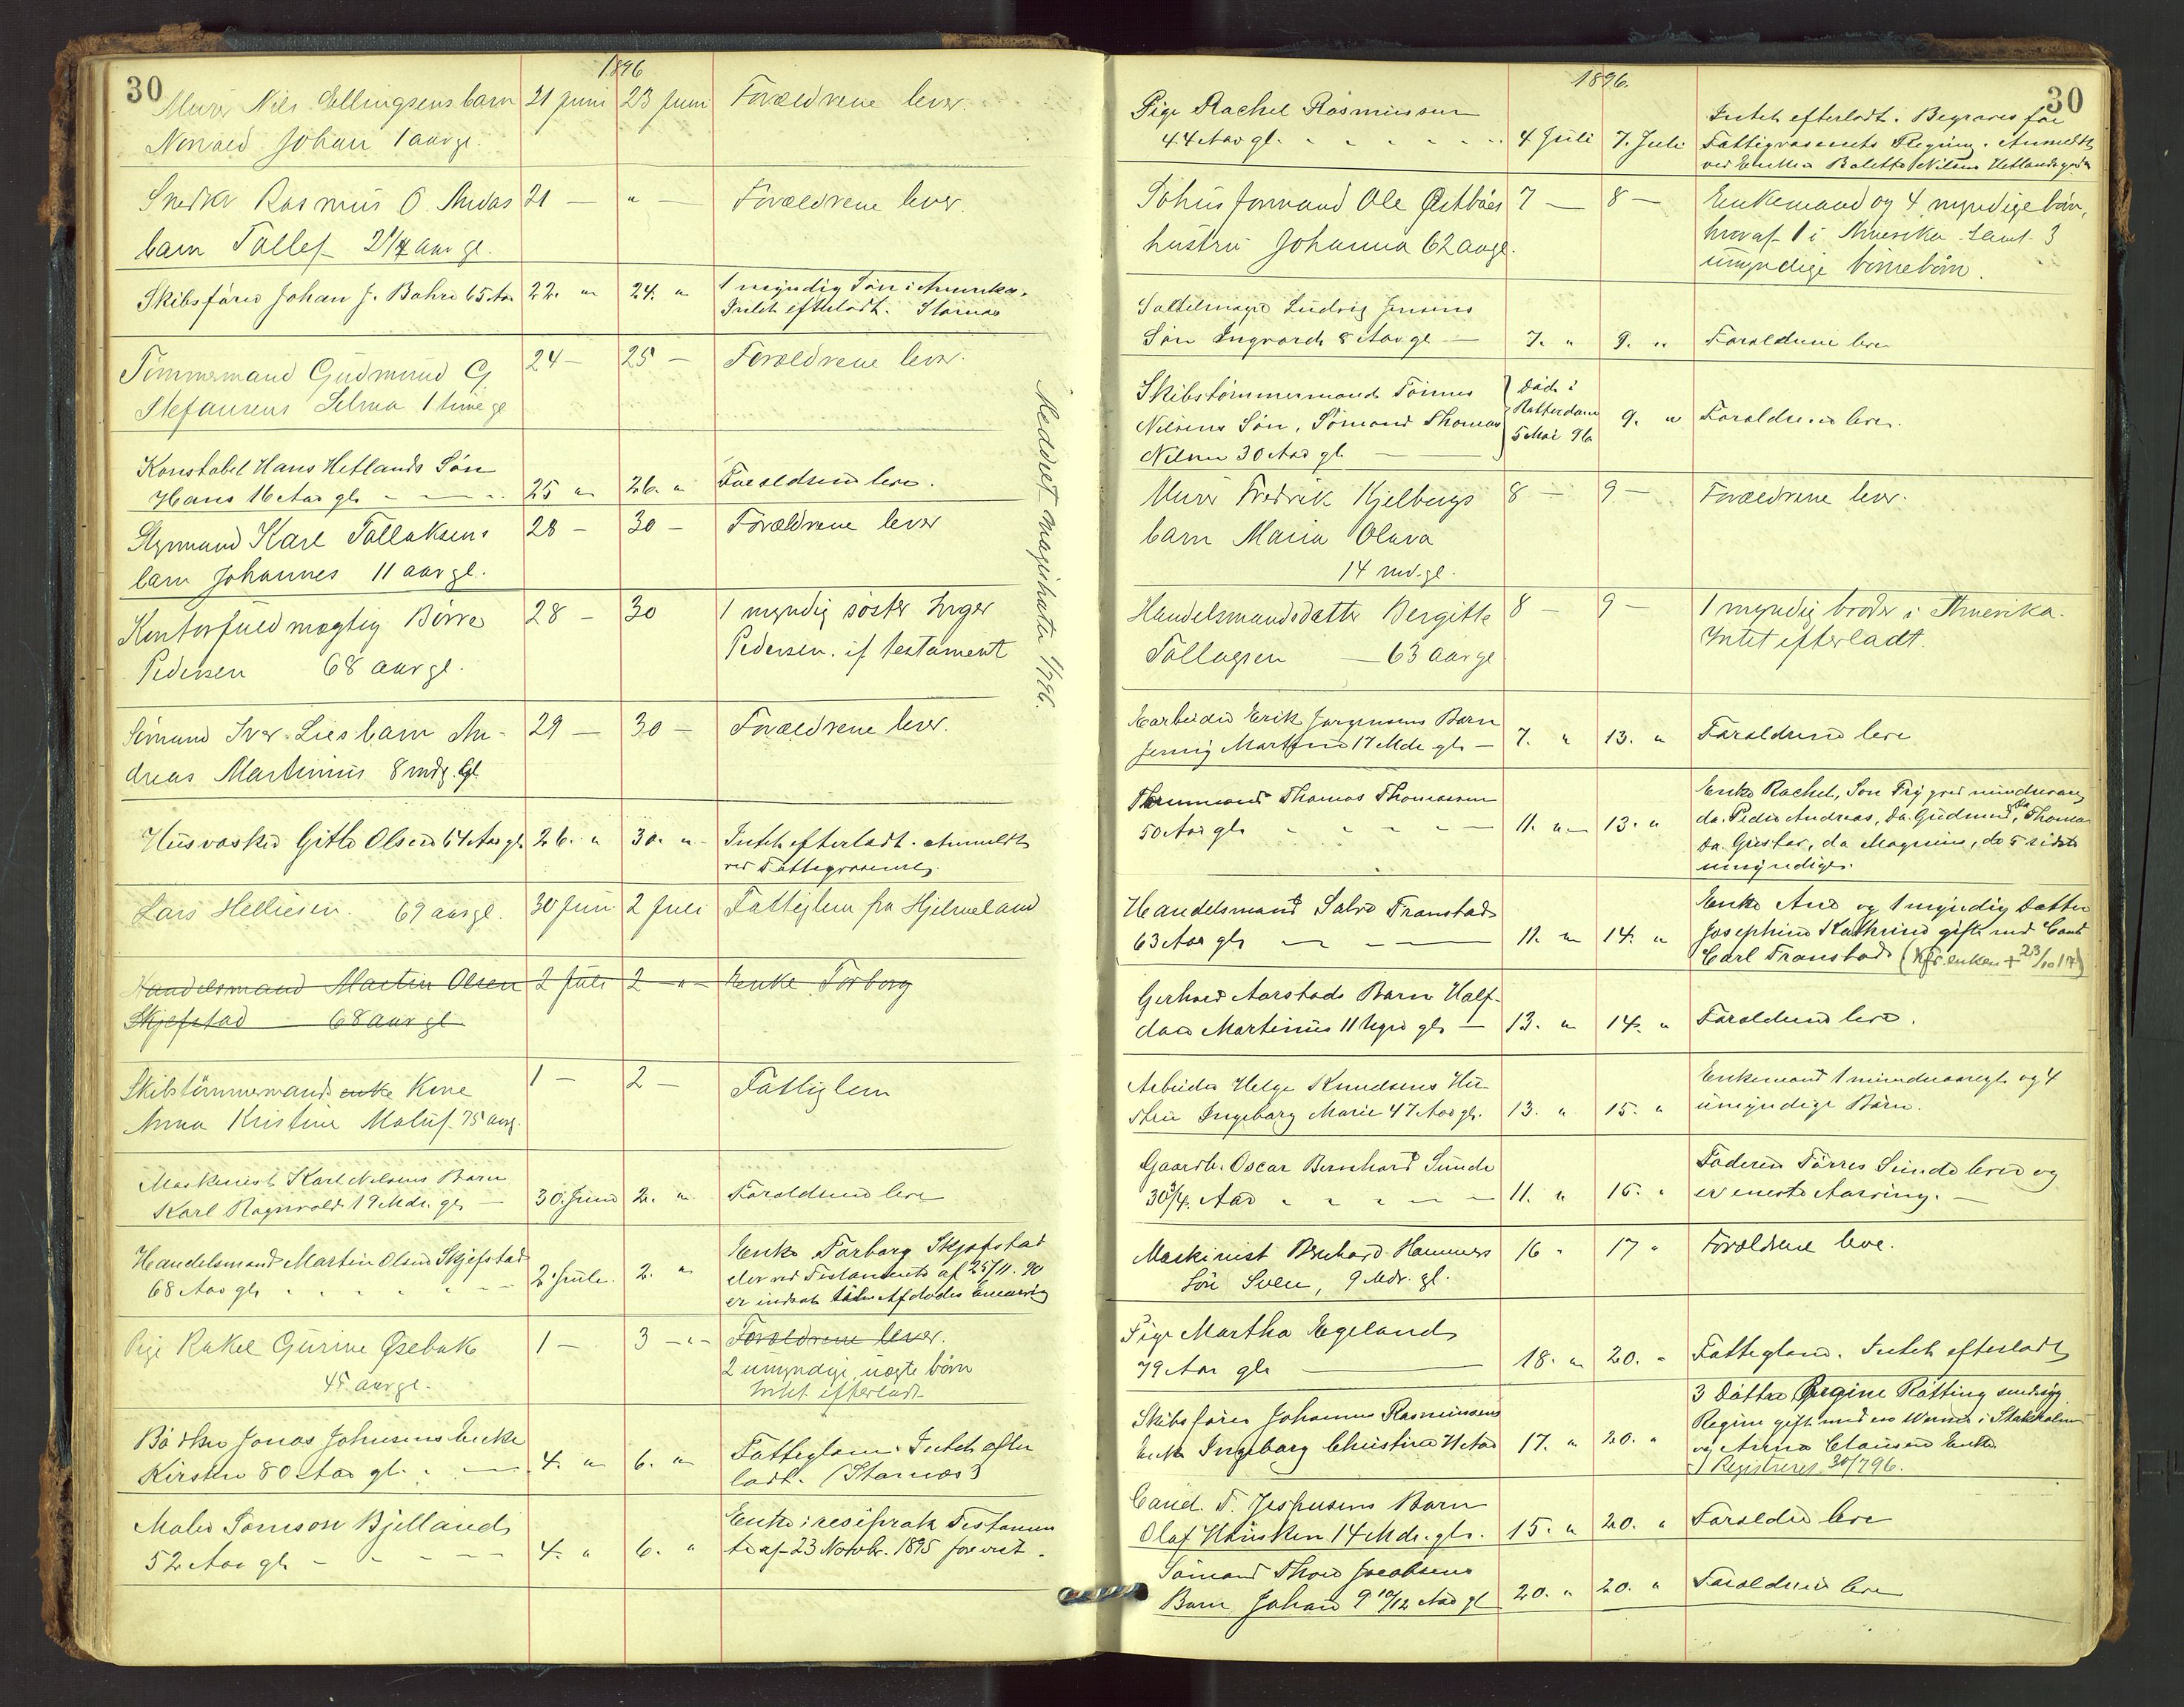 30
1896
Murer Nils Ellingsens barn 21 juni 23 juni Forældrene lever.
Johan 1 aar gl.
Snedker Rasmus O. barn Tallef 2 1/4 aar gl. 21 — " — Forældrene lever.
Skibsfører Johan J. 65 Aar 22. " 24. " 1 myndig Søn i Amerika.
Intet efterladt.
Tømmermand Gudmund G. 24 — 25 — Forældrene lever.
Stefansens Selma 1 time gl
Konstabel Hans Hetlands Søn
Hans 16 Aar gl. 25 " 26. " Forældrene lever.
Styrmand Karl Tallaksens 28 — 30 — Forældrene lever
barn Johannes 11 aar gl.
Kontorfuldmægtig Børre 28 — 30 1 myndig søster Inger
Pedersen 68 aar gl. Pedersen. if testament
Sømand Iver Lies barn An- 29 — 30 — Forældrene lever.
dreas Martinius 8 mdr. gl.
Husvasker Gitle Olsen 64 Aar gl. 26. " 30. " Intet efterladt. Anmeldt
ved Fattigvæsenet
Lars Helliesen. 69 aar gl. 30 Juni 2 Juli Fattiglem fra Hjelmeland
Handelsmand Martin Olsen 2 Juli 2 — " — Enke Torborg
Skjefstad 68 aar gl
Skibstømmermands enke Kone 1 — 2 — Fattiglem
Anna Kristine Maluf. 75 aar g.
Maskinist Karl Nilsens Barn
Karl Ragnvald 19 Mdr. gl. — 30. Juni 2. " Forældrene lever
Handelsmand Martin Olsen Skjefstad Enke Torborg Skjefstad
68 Aar gl. 2. Juli. 2. " der ved Testamente af 25/11. 90
er indsat Afdødes
Pige Rakel Gurine Øsebak 1 — 3 — " — Forældrene lever.
45 aar gl. 2 umyndige uægte børn
Intet efterladt
Bødker Jonas Johnsens Enke Fattiglem. Intet efter
Kirsten 80 Aar gl. 4. " 6. " ladt.
Maler Samson Bjelland Enke
52 Aar gl. 4. " 6. " af 23 Novbr. 1895 forevist.
Meddelt magistraten 1/7 96.
30
1896.
Pige Rachel Rasmussen Intet efterladt. Begraves for
44 Aar gl. 4 Juli 7. Juli Fattigvæsenets Regning. Anmeldt
ved Nilsen
Ole Østbøes 7 — 8 — Enkemand og 4 myndige børn,
hustru Johanna 62 aar gl. hvoraf 1 i Amerika samt 3
umyndige børnebørn.
Ludvig Jensens
Søn Ingvard 8 Aar gl — 7. " 9. " Forældrene lever
Skibstømmermand Tønnes Død i
Nilsens Søn, Sømand Thomas Rotterdam 9. " Forældrene lever.
Nilsen 30 Aar gl. 5 Mai 96
Murer Fredrik Kjelbergs 8 — 9 — Forældrene lever.
barn Maria Olava
14 md. gl.
Handelsmandsdatter Bergitte 8 — 9 — 1 myndig broder i Amerika.
Tallagsen — 63 aar gl. Intet efterladt.
Erik Jørgensens Barn
Jenny 17 Mdr gl. — 7. " 13. " Forældrene lever
Thomas Thomassen Enke Rachel, Søn Trygve mindreaarig
50 Aar gl. 11. " 13. " do. Peder Andreas, do. Gudmund, do Thomas
do. Gustav, do Magnus, de 5 sidste
umyndige.
Handelsmand Salve Transtad Enke Ane og 1 myndig Datter
63 Aar gl. 11. " 14. " Josephine Kathrine gift med Cand
Carl Transtad (Kfr. enken + 23/10 17)
Gerhard Aarstads Barn Half-
dan Martinius 11 Uger gl. — 13. " 14. " Forældrene lever.
Arbeider Helge Knudsens Hu- Enkemand 1 mindreaarig og 4
stru Ingeborg Marie 47 Aar gl. 13. " 15. " umyndige Børn.
Gaardb. Oscar Bernhard Sunde Faderen Tørres Sunde lever og
30 3/4 Aar 11. " 16. " er eneste Arving. —
Maskinist Bernhard Hammers 16 " 17 " Forældrene lever.
Søn Sven, 9 Mdr. gl.
Pige Martha Egeland
79 Aar gl. 18. " 20. " Fattiglem. Intet efterladt
Skibsfører Johannes Rasmussens 3 Døttre Rötting
Enke Ingeborg Christine 71 Aar 17. " 20. " Regine gift med en Werner i Stockholm
og Anna Clausen Enke
Registreret 30/7 96.
Cand. T. Jespersens Barn
Olaf 14 Mdr. gl. 15. " 20. " Forældre lever
Sømand Thore Jacobsens
Barn Johan 9 10/12 Aar gl 20. " 20. " Forældrene lever